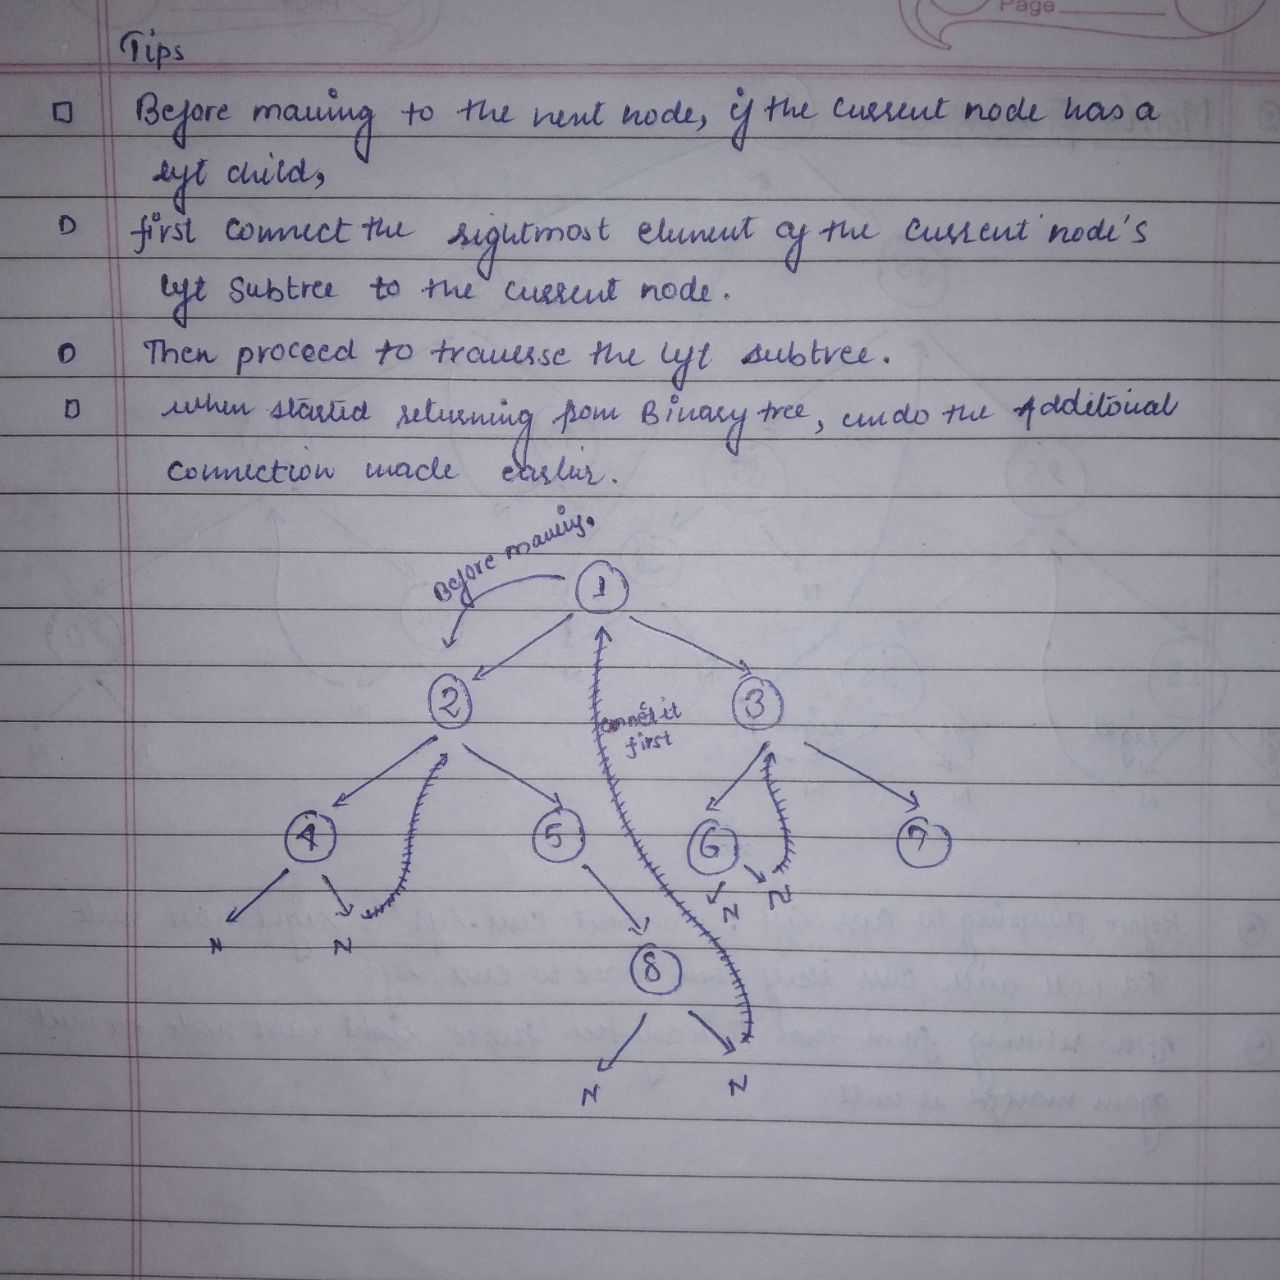 Page
Tips
Before moving to the next node, if the current node has a
left child,
first connect the rightmost element of the current node's
left subtree to the current node.
Then proceed to traverse the left subtree.
when started returning from Binary tree, undo the Additoial
connection made earlier.
Before moving,
1
2
connect it
first
3
4
5
6
7
N
N
N
N
8
N
N